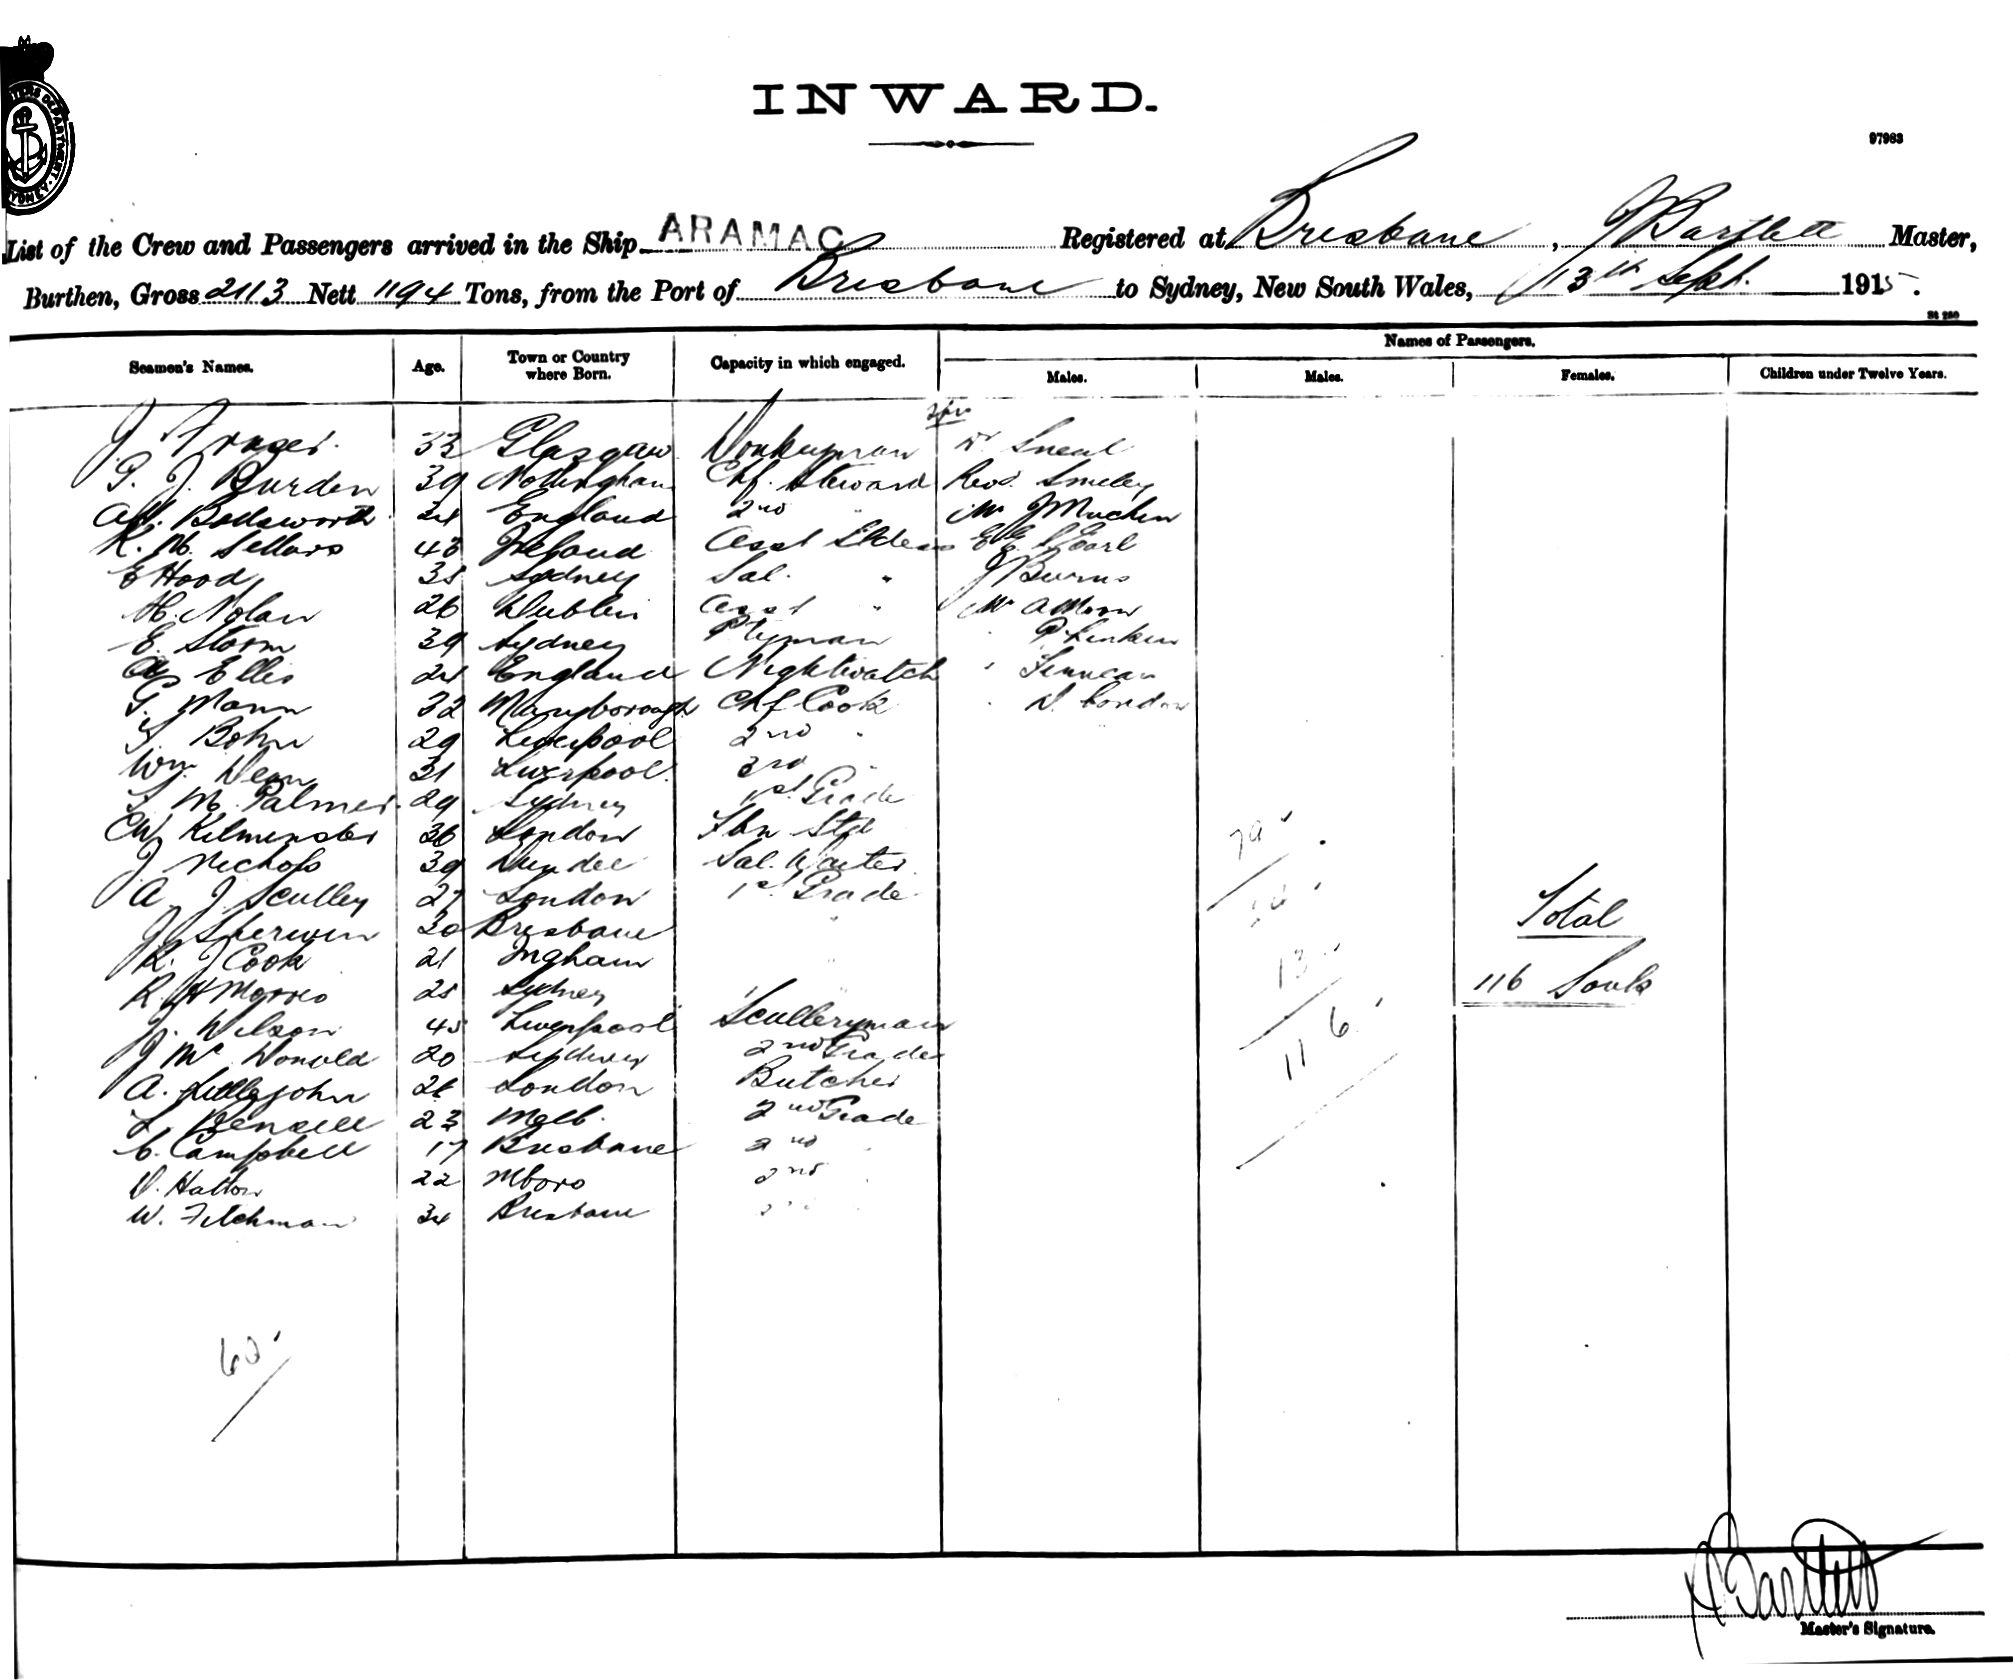 INWARD.
97983
List of the Crew and Passengers arrived in the Ship ARAMAC Registered at Brisbane, J Bartlett Master,
Burthen, Gross 2113 Nett 1194 Tons, from the Port of Brisbane to Sydney, New South Wales, 13th Sept. 1915.
St 250
Seamen's Names. Age. Town or Country where Born. Capacity in which engaged. Names of Passengers.
Males. Males. Females. Children under Twelve Years.
J. Fraser. 33 Glasgow Donkeyman
P. J. Burden 39 Nottingham Chf. Steward Revd. Smiley
Bollsworth 24 England 2nd " Mr J Machin
K. M. Sellars 43 Ireland Asst Stdess Earl
E Hood 35 Sydney Sal. " J Burns
H. Nolan 26 Dublin Asst " Mr A Moon
E. Storm 39 Sydney Ptyman
Ellis 24 England Nightwatch
G. Mann 32 Maryborough Chf Cook " London
Bohn 29 Liverpool 2nd "
Wm. Dean 31 Liverpool. 3rd "
M. Palmer. 29 Sydney 1st Grade
CW Kilminster 36 London Std
J Nichols 39 Dundee Sal. Waiter
A. J. Sculley 27 London 1st Grade
J Sherwin 30 Brisbane "
R. J Cook 21 Ingham "
R. H Morris 25 Sydney
J. Wilson 45 Liverpool Sculleryman
J Mc Donald 20 Sydney 2nd Grade
A. Littlejohn 26 London Butcher
L. 23 Melb. 2nd Grade
C. Campbell 17 Brisbane 2nd "
V. Hatton 22 Mboro 2nd "
W. Fitchman 34 Brisbane
79
13
116
Total
116 Souls
60
J Bartlett
Master's Signature.